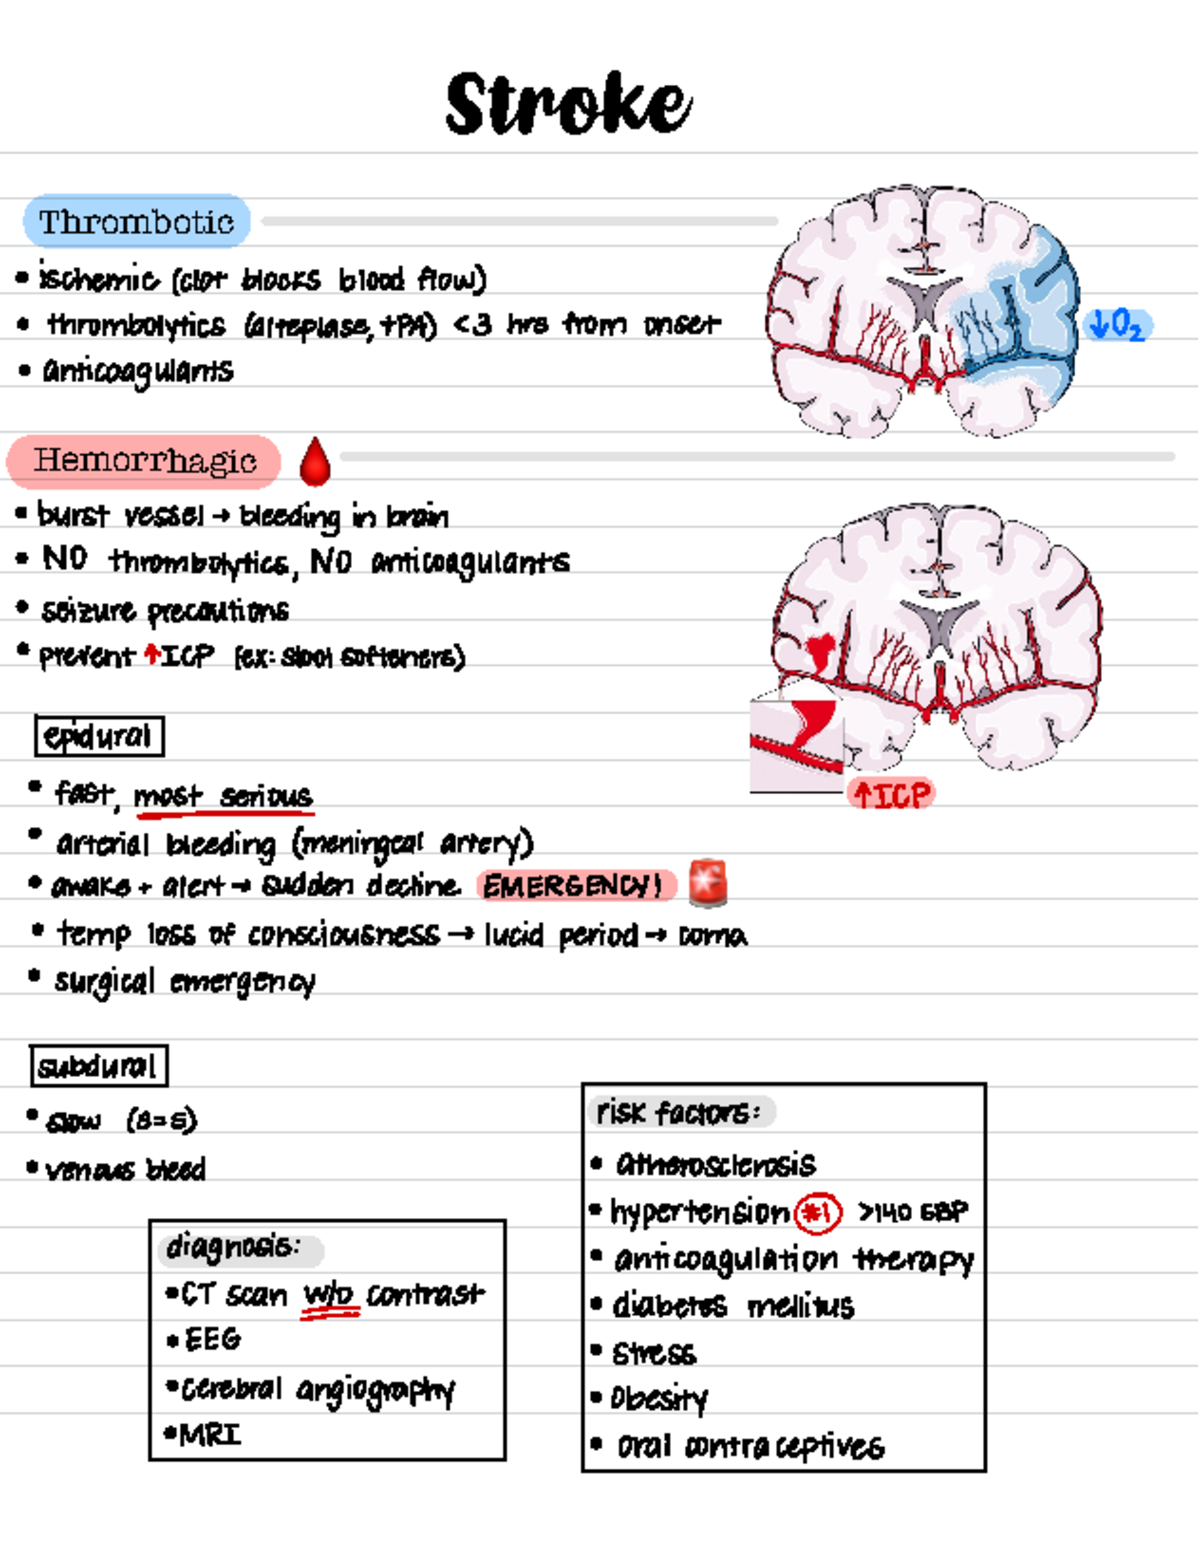 Stroke
Thrombotic
• ischemic (clot blocks blood flow)
• thrombolytics (alteplase, tPA) <3 hrs from onset
• anticoagulants
↓O₂
Hemorrhagic
• burst vessel → bleeding in brain
• NO thrombolytics, NO anticoagulants
• seizure precautions
• prevent ↑ICP (ex: stool softeners)
↑ICP
epidural
• fast, most serious
• arterial bleeding (meningeal artery)
• awake + alert → sudden decline EMERGENCY!
• temp loss of consciousness → lucid period → coma
• surgical emergency
subdural
• slow (s=s)
• venous bleed
diagnosis:
• CT scan w/o contrast
• EEG
• cerebral angiography
• MRI
risk factors:
• atherosclerosis
• hypertension #1 >140 SBP
• anticoagulation therapy
• diabetes mellitus
• stress
• obesity
• oral contraceptives